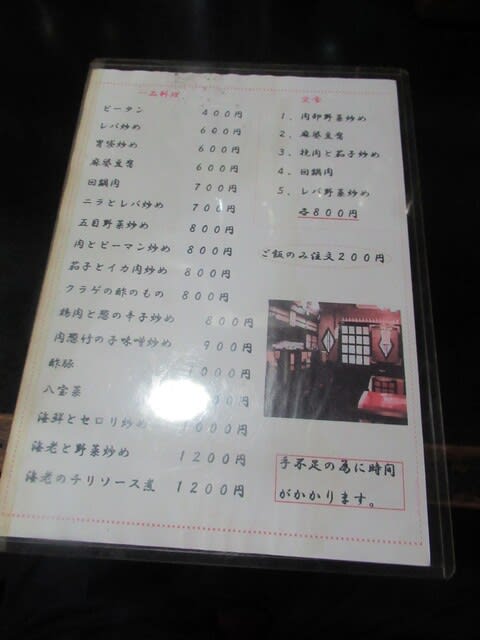 一品料理
ピータン 400円
レバ炒め 600円
胃袋炒め 600円
麻婆豆腐 600円
回鍋肉 700円
ニラとレバ炒め 700円
五目野菜炒め 800円
肉とピーマン炒め 800円
茄子とイカ肉炒め 800円
クラゲの酢のもの 800円
鶏肉と葱の辛子炒め 800円
肉葱竹の子味噌炒め 900円
酢豚 1000円
八宝菜 円
海鮮とセロリ炒め 1000円
海老と野菜炒め 1200円
海老のチリソース煮 1200円
定食
1、肉卵野菜炒め
2、麻婆豆腐
3、挽肉と茄子炒め
4、回鍋肉
5、レバ野菜炒め
各800円
ご飯のみ注文200円
手不足の為に時間
がかかります。